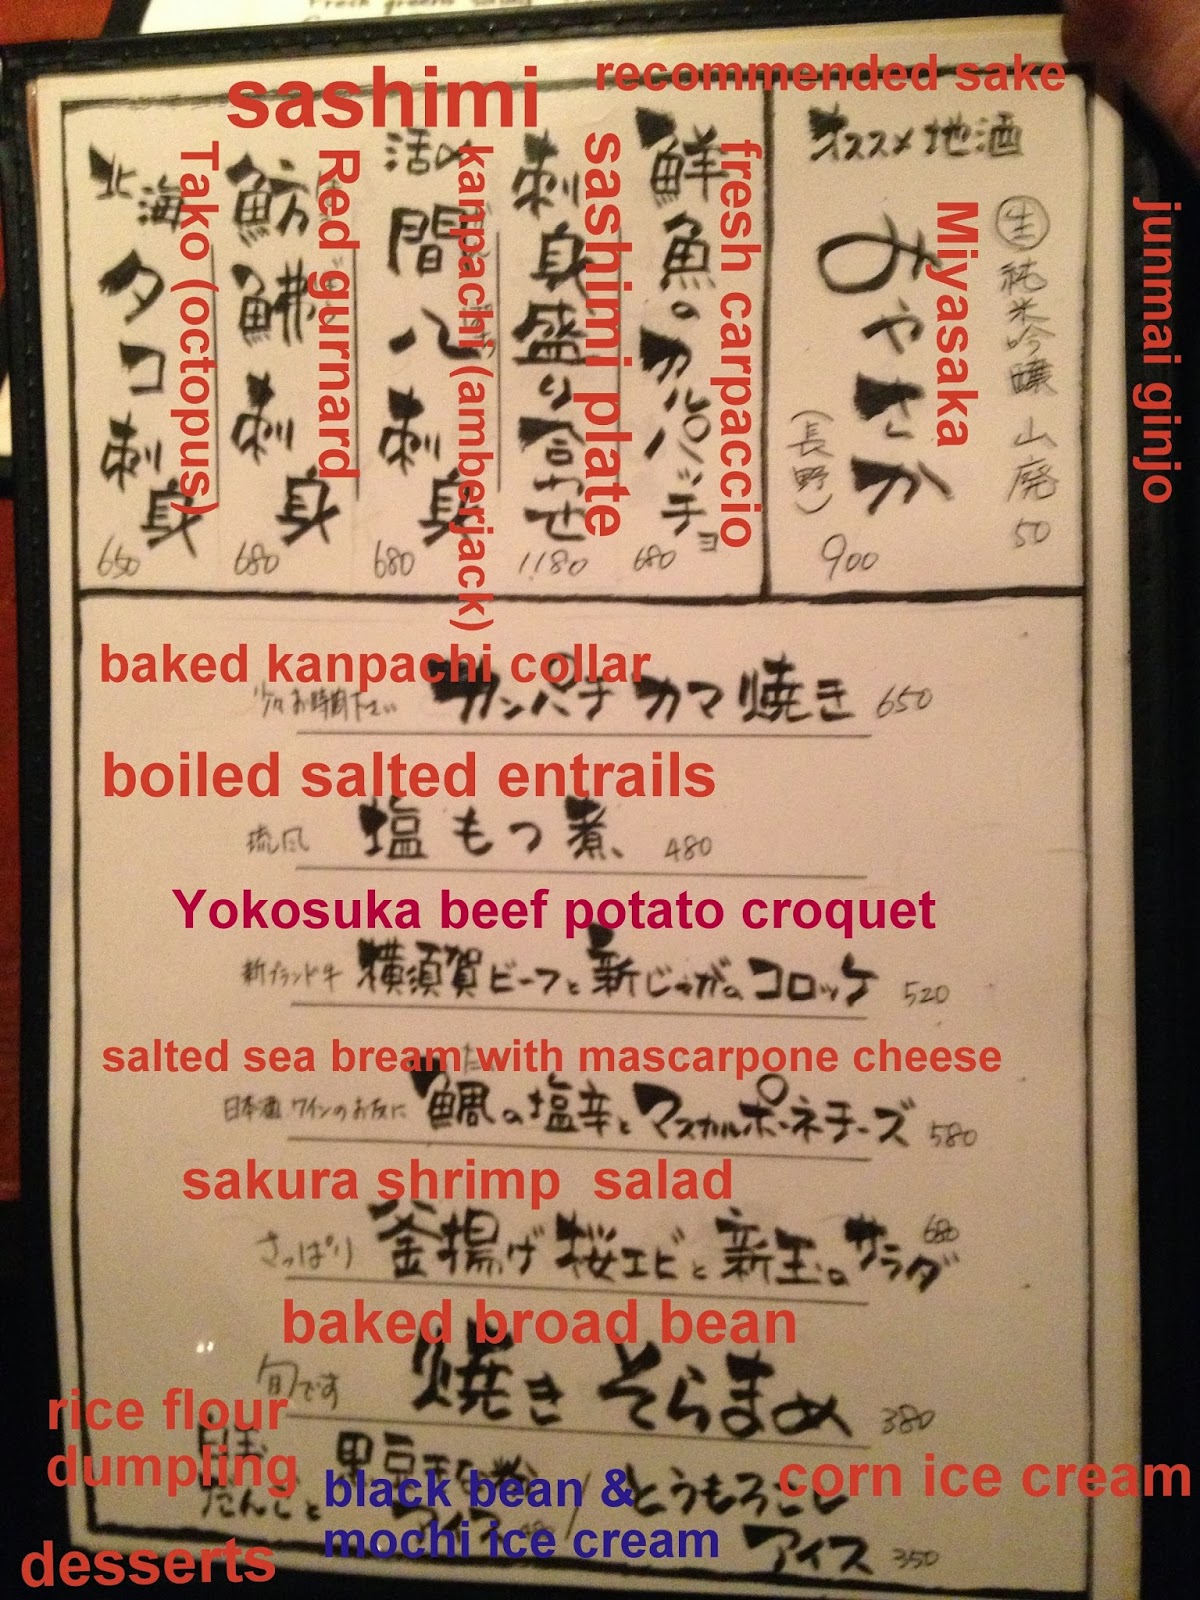 recommended sake
オススメ地酒
生 純米吟醸 山廃
junmai ginjo
みやさか
Miyasaka
(長野)
900
50
sashimi
鮮魚のカルパッチョ
fresh carpaccio
680
刺身盛り合わせ
sashimi plate
1180
活〆 間八刺身
kanpachi (amberjack)
680
魴鮄刺身
Red gurnard
680
北海タコ刺身
Tako (octopus)
650
baked kanpachi collar
少々お時間下さい カンパチカマ焼き 650
boiled salted entrails
琉風 塩もつ煮 480
Yokosuka beef potato croquet
新ブランド牛 横須賀ビーフと新じゃがのコロッケ 520
salted sea bream with mascarpone cheese
日本酒 ワインのお友に 鯛の塩辛とマスカルポーネチーズ 580
sakura shrimp salad
さっぱり 釜揚げ桜エビと新玉のサラダ 680
baked broad bean
旬です 焼きそらまめ 380
rice flour
dumpling
白玉だんごと
黒豆きな粉アイス
black bean &
mochi ice cream
/
corn ice cream
とうもろこしアイス 350
desserts